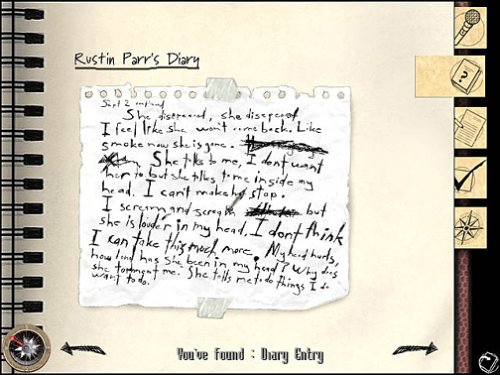 Rustin Parr's Diary
Sept 2 midnight
She disapeared, she disapeard
I feel like she won't come back. Like
smoke now she is gone.
She talks to me, I dont want
her to but she talks to me inside my
head. I can't make her stop.
I scream and scream but
she is louder in my head. I dont think
I can take this much more. My head hurts,
how long has she been in my head? Why does
she torment me. She tells me to do things I do
want to do.
You've found : Diary Entry